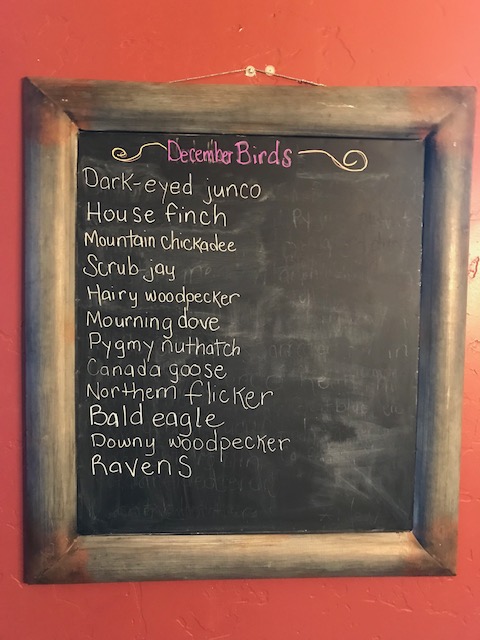 December Birds
Dark-eyed junco
House finch
Mountain chickadee
Scrub jay
Hairy woodpecker
Mourning dove
Pygmy nuthatch
Canada goose
Northern flicker
Bald eagle
Downy woodpecker
Ravens